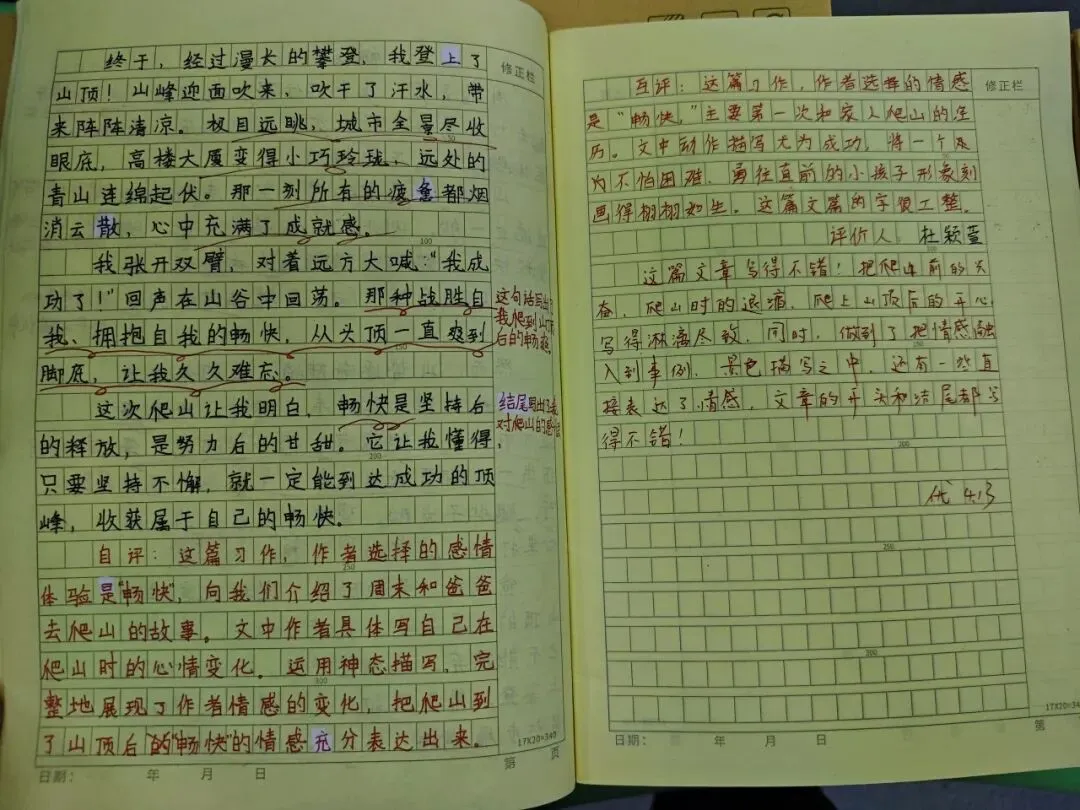 终于，经过漫长的攀登，我登上了
山顶！山峰迎面吹来，吹干了汗水，带
来阵阵清凉。极目远眺，城市全景尽收
眼底，高楼大厦变得小巧玲珑，远处的
青山连绵起伏。那一刻所有的疲惫都烟
消云散，心中充满了成就感。
我张开双臂，对着远方大喊：“我成
功了！”回声在山谷中回荡。那种战胜自
我、拥抱自我的畅快，从头顶一直爽到
脚底，让我久久难忘。
这次爬山让我明白，畅快是坚持后
的释放，是努力后的甘甜。它让我懂得，
只要坚持不懈，就一定能到达成功的顶
峰，收获属于自己的畅快。
自评：这篇习作，作者选择的感情
体验是“畅快”，向我们介绍了周末和爸爸
去爬山的故事。文中作者具体写自己在
爬山时的心情变化。运用神态描写，完
整地展现了作者情感的变化，把爬山到
了山顶后的“畅快”的情感充分表达出来。
修正栏
这句话写出了
我爬到山顶
后的畅爽
结尾写出了我
对爬山的感
100
200
300
17X20=340
日期： 年 月 日
第 页
互评：这篇习作，作者选择的情感
是“畅快，”主要第一次和家人爬山的经
历。文中动作描写尤为成功，将一个
为不怕困难、勇往直前的小孩子形象刻
画得栩栩如生。这篇文篇的字很工整。
评价人：杜颖萱
这篇文章写得不错！把爬山前的兴
奋，爬山时的退缩，爬上山顶后的开心
写得淋漓尽致，同时，做到了把情感融
入到事例、景色描写之中，还有一些直
接表达了情感，文章的开头和结尾都写
得不错！
优 4.13
修正栏
200
250
300
17X20=340
日期： 年 月 日
第